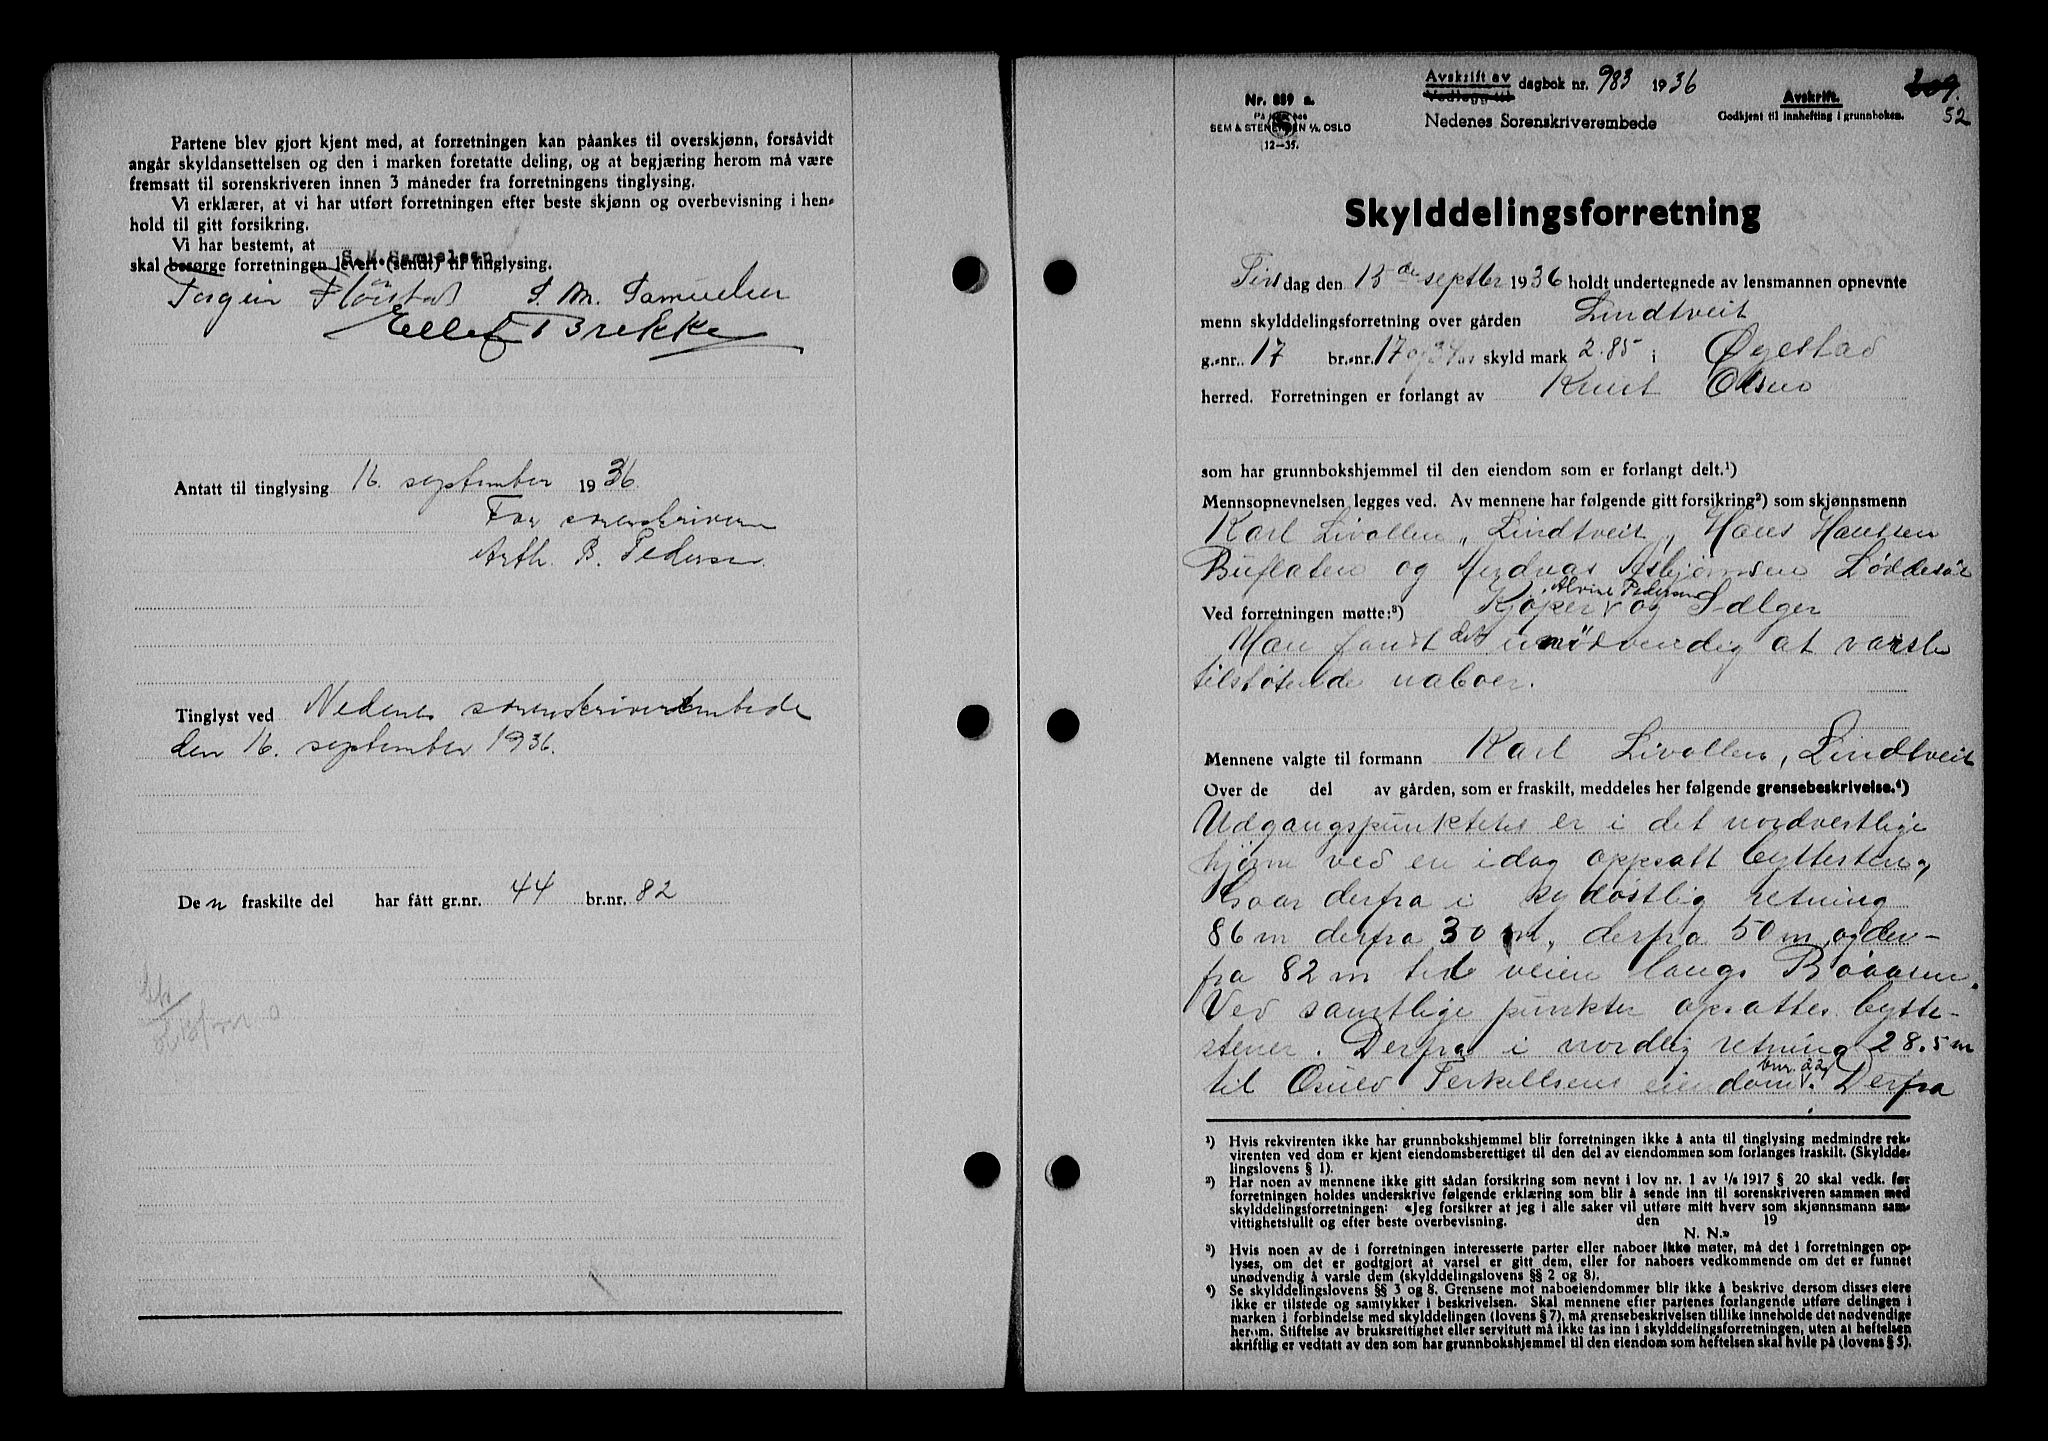 Partene blev gjort kjent med, at forretningen kan påankes til overskjønn, forsåvidt
angår skyldansettelsen og den i marken foretatte deling, og at begjæring herom må være
fremsatt til sorenskriveren innen 3 måneder fra forretningens tinglysing.
Vi erklærer, at vi har utført forretningen efter beste skjønn og overbevisning i hen-
hold til gitt forsikring.
Vi har bestemt, at
S.M.Samuelsen
skal besørge forretningen levert (sendt) til tinglysing.
Torgeir Flørstad S. M. Samuelsen
Ellef Brekke
Antatt til tinglysing 16. september 1936
For sorenskriveren
Arth. B. Pedersen
Tinglyst ved Nedenes sorenskriverembede
den 16. september 1936.
Den fraskilte del har fått gr.nr. 44 br.nr. 82
Avskrift av
Vedlegg til
dagbok nr. 983 1936
Nedenes Sorenskriverembede
Nr. 859 a.
På lager hos
SEM & STENERSEN A/S, OSLO
12—35.
Avskrift.
Godkjent til innhefting i grunnboken.
209.
52
Skylddelingsforretning
Tirsdag den 15 de septbr 1936 holdt undertegnede av lensmannen opnevnte
menn skylddelingsforretning over gården Lindtveit
g.-nr. 17 br.-nr. 17 og 34 av skyld mark 2.85 i Øyestad
herred. Forretningen er forlangt av Knut Olsen
som har grunnbokshjemmel til den eiendom som er forlangt delt.¹)
Mennsopnevnelsen legges ved. Av mennene har følgende gitt forsikring²) som skjønnsmenn
Karl Livollen, Lindtveit, Hans Hansen
Buflaten og Andreas Asbjørnsen Løddesøl
Ved forretningen møtte:³) Kjøper Alvine Pedersen og Sælger
Man fandt det unødvendig at varsle
tilstøtende naboer.
Mennene valgte til formann Karl Livollen, Lindtveit
Over de del av gården, som er fraskilt, meddeles her følgende grensebeskrivelse.⁴)
Udgangspunktetet er i det nordvestlige
hjørne ved en idag oppsatt byttesten,
Gaar derfra i sydøstlig retning
86 m derfra 30 m, derfra 50 m og der-
fra 82 m til veien langs Bøaasen.
Ved samtlige punkter opsattes bytte-
stener. Derfra i nordlig retning 28.5 m
til Osuld Terkellsens eiendom bnr. 22. Derfra
¹) Hvis rekvirenten ikke har grunnbokshjemmel blir forretningen ikke å anta til tinglysing medmindre rek-
virenten ved dom er kjent eiendomsberettiget til den del av eiendommen som forlanges fraskilt. (Skyldde-
lingslovens § 1).
²) Har noen av mennene ikke gitt sådan forsikring som nevnt i lov nr. 1 av ¹/₆ 1917 § 20 skal vedk. før
forretningen holdes underskrive følgende erklæring som blir å sende inn til sorenskriveren sammen med
skylddelingsforretningen: «Jeg forsikrer at jeg i alle saker vil utføre mitt hverv som skjønnsmann sam-
vittighetsfullt og efter beste overbevisning. den 19
N. N.»
³) Hvis noen av de i forretningen interesserte parter eller naboer ikke møter, må det i forretningen op-
lyses, om det er godtgjort at varsel er gitt dem, eller for naboers vedkommende om det er funnet
unødvendig å varsle dem (skylddelingslovens §§ 2 og 8).
⁴) Se skylddelingslovens §§ 3 og 8. Grensene mot naboeiendommer blir ikke å beskrive dersom disses eiere
ikke er tilstede og samtykker i beskrivelsen. Skal mennene efter partenes forlangende utføre delingen i
marken i forbindelse med skylddelingen (lovens § 7), må grensebeskrivelsen tillike inneholde det nødvendige
herom. Stiftelse av bruksrettighet eller servitutt må ikke tas inn i skylddelingsforretningen, uten at heftelsen
skriftlig er vedtatt av den som har grunnbokshjemmel til den eiendom som heftelsen skal hvile på (lovens § 5).